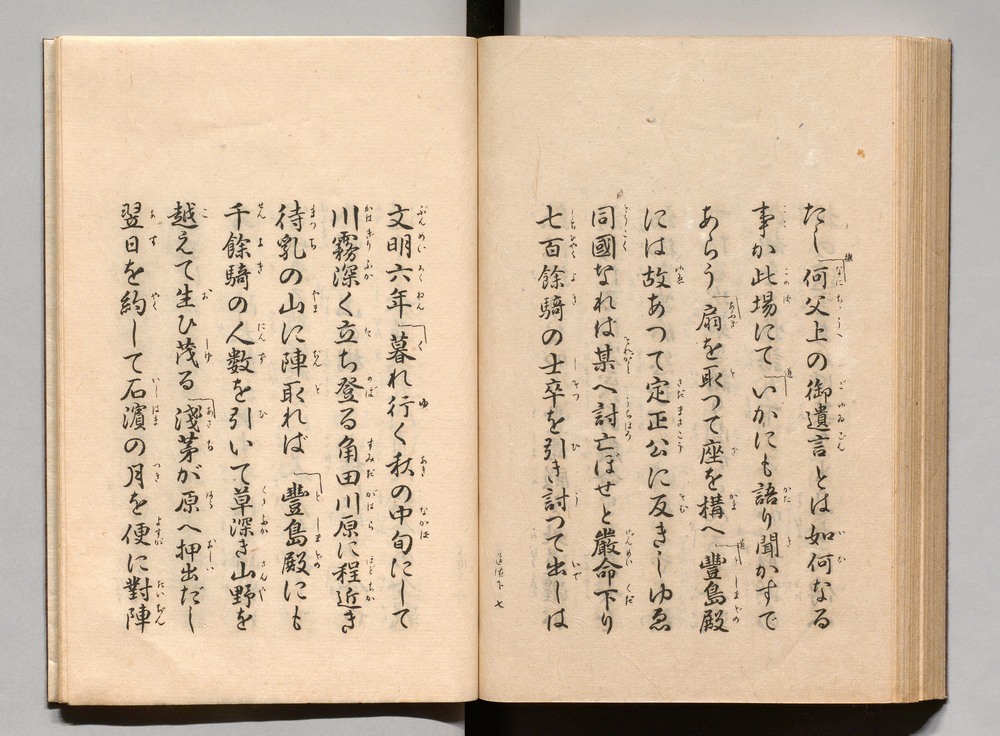 たし「何父上の御遺言とは如何なる
事か此場にて「いかにも語り聞かすで
あらう「扇を取つて座を構へ「豐島殿
には故あつて定正公に反きしゆゑ
同國なれは某へ討亡ぼせと嚴命下り
七百餘騎の士卒を引き討つて出しは
七
文明六年「暮れ行く秋の中旬にして
川霧深く立ち登る角田川原に程近き
待乳の山に陣取れば「豐島殿にも
千餘騎の人数を引いて草深き山野を
越えて生ひ茂る「淺茅が原へ押出だし
翌日を約して石濱の月を便に對陣